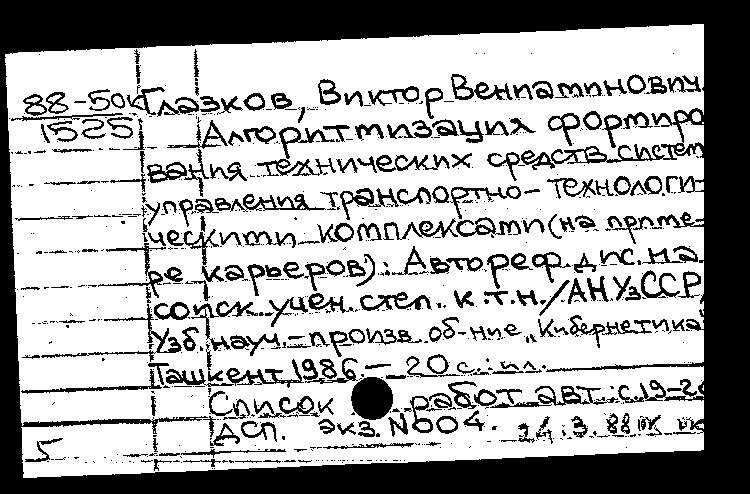 88-50к Глазков, Виктор Вениаминович.
1525 Алгоритмизация формиро
вания технических средств систем
управления транспортно-технологи-
ческими комплексами (на приме-
ре карьеров): Автореф. дис. на
соиск. учен. степ. к.т.н. / АН УзССР,
Узб. науч.-произв. об-ние „Кибернетика"
Ташкент, 1986. — 20 с.: ил.
Список работ авт.: с. 19-20
ДСП. Экз. N004. 24.3.88
5